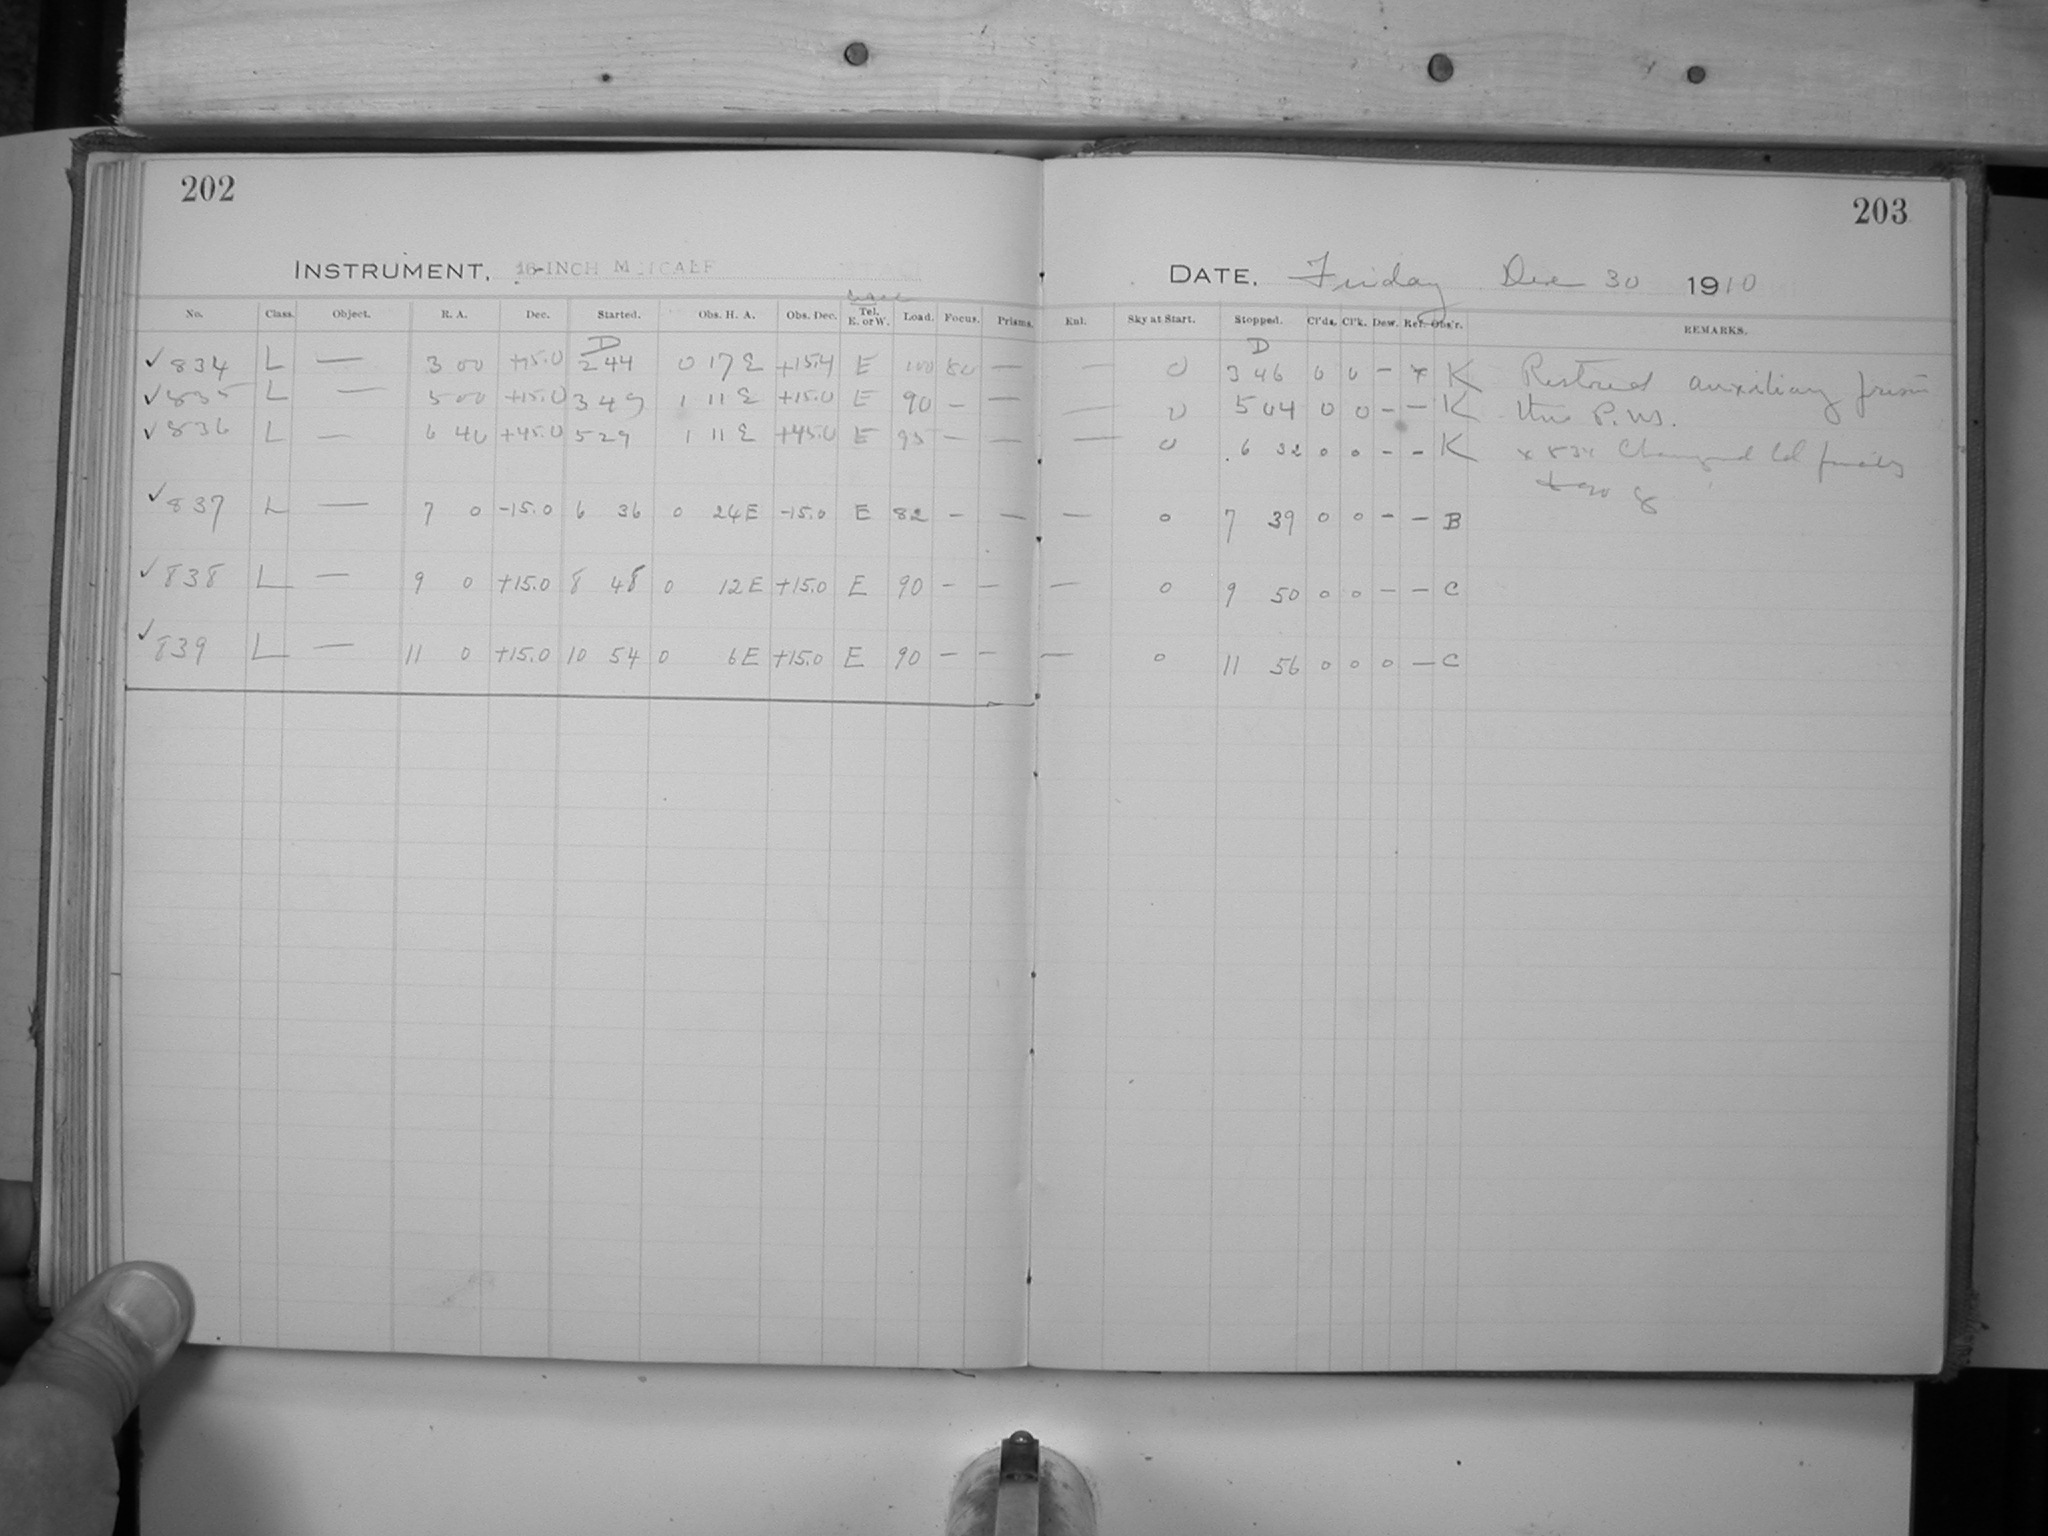 202
203
INSTRUMENT, 16-INCH METCALF
DATE, Friday Dec 30 1910
No. Class. Object. R. A. Dec. Started. Obs. H. A. Obs. Dec. Tel. E. or W. Load. Focus. Prisms. Enl. Sky at Start. Stopped. Cl'ds. Cl'k. Dew. Ref. Obs'r. REMARKS.
D D
✓ 834 L — 3 00 +15.0 2 44 0 17 E +15.4 E 100 80 — — 0 3 46 0 0 – x K Restored auxiliary prism
✓ 835 L — 5 00 +15.0 3 49 1 11 E +15.0 E 90 – — — 0 5 04 0 0 – – K this P.M.
✓ 836 L — 6 40 +45.0 5 29 1 11 E +45.0 E 95 – — — 0 6 32 0 0 – – K x 834 Changed
✓ 837 L — 7 0 -15.0 6 36 0 24 E -15.0 E 82 – — — 0 7 39 0 0 – – B
✓ 838 L — 9 0 +15.0 8 48 0 12 E +15.0 E 90 – – — 0 9 50 0 0 – – C
✓ 839 L — 11 0 +15.0 10 54 0 6 E +15.0 E 90 – – — 0 11 56 0 0 0 – C